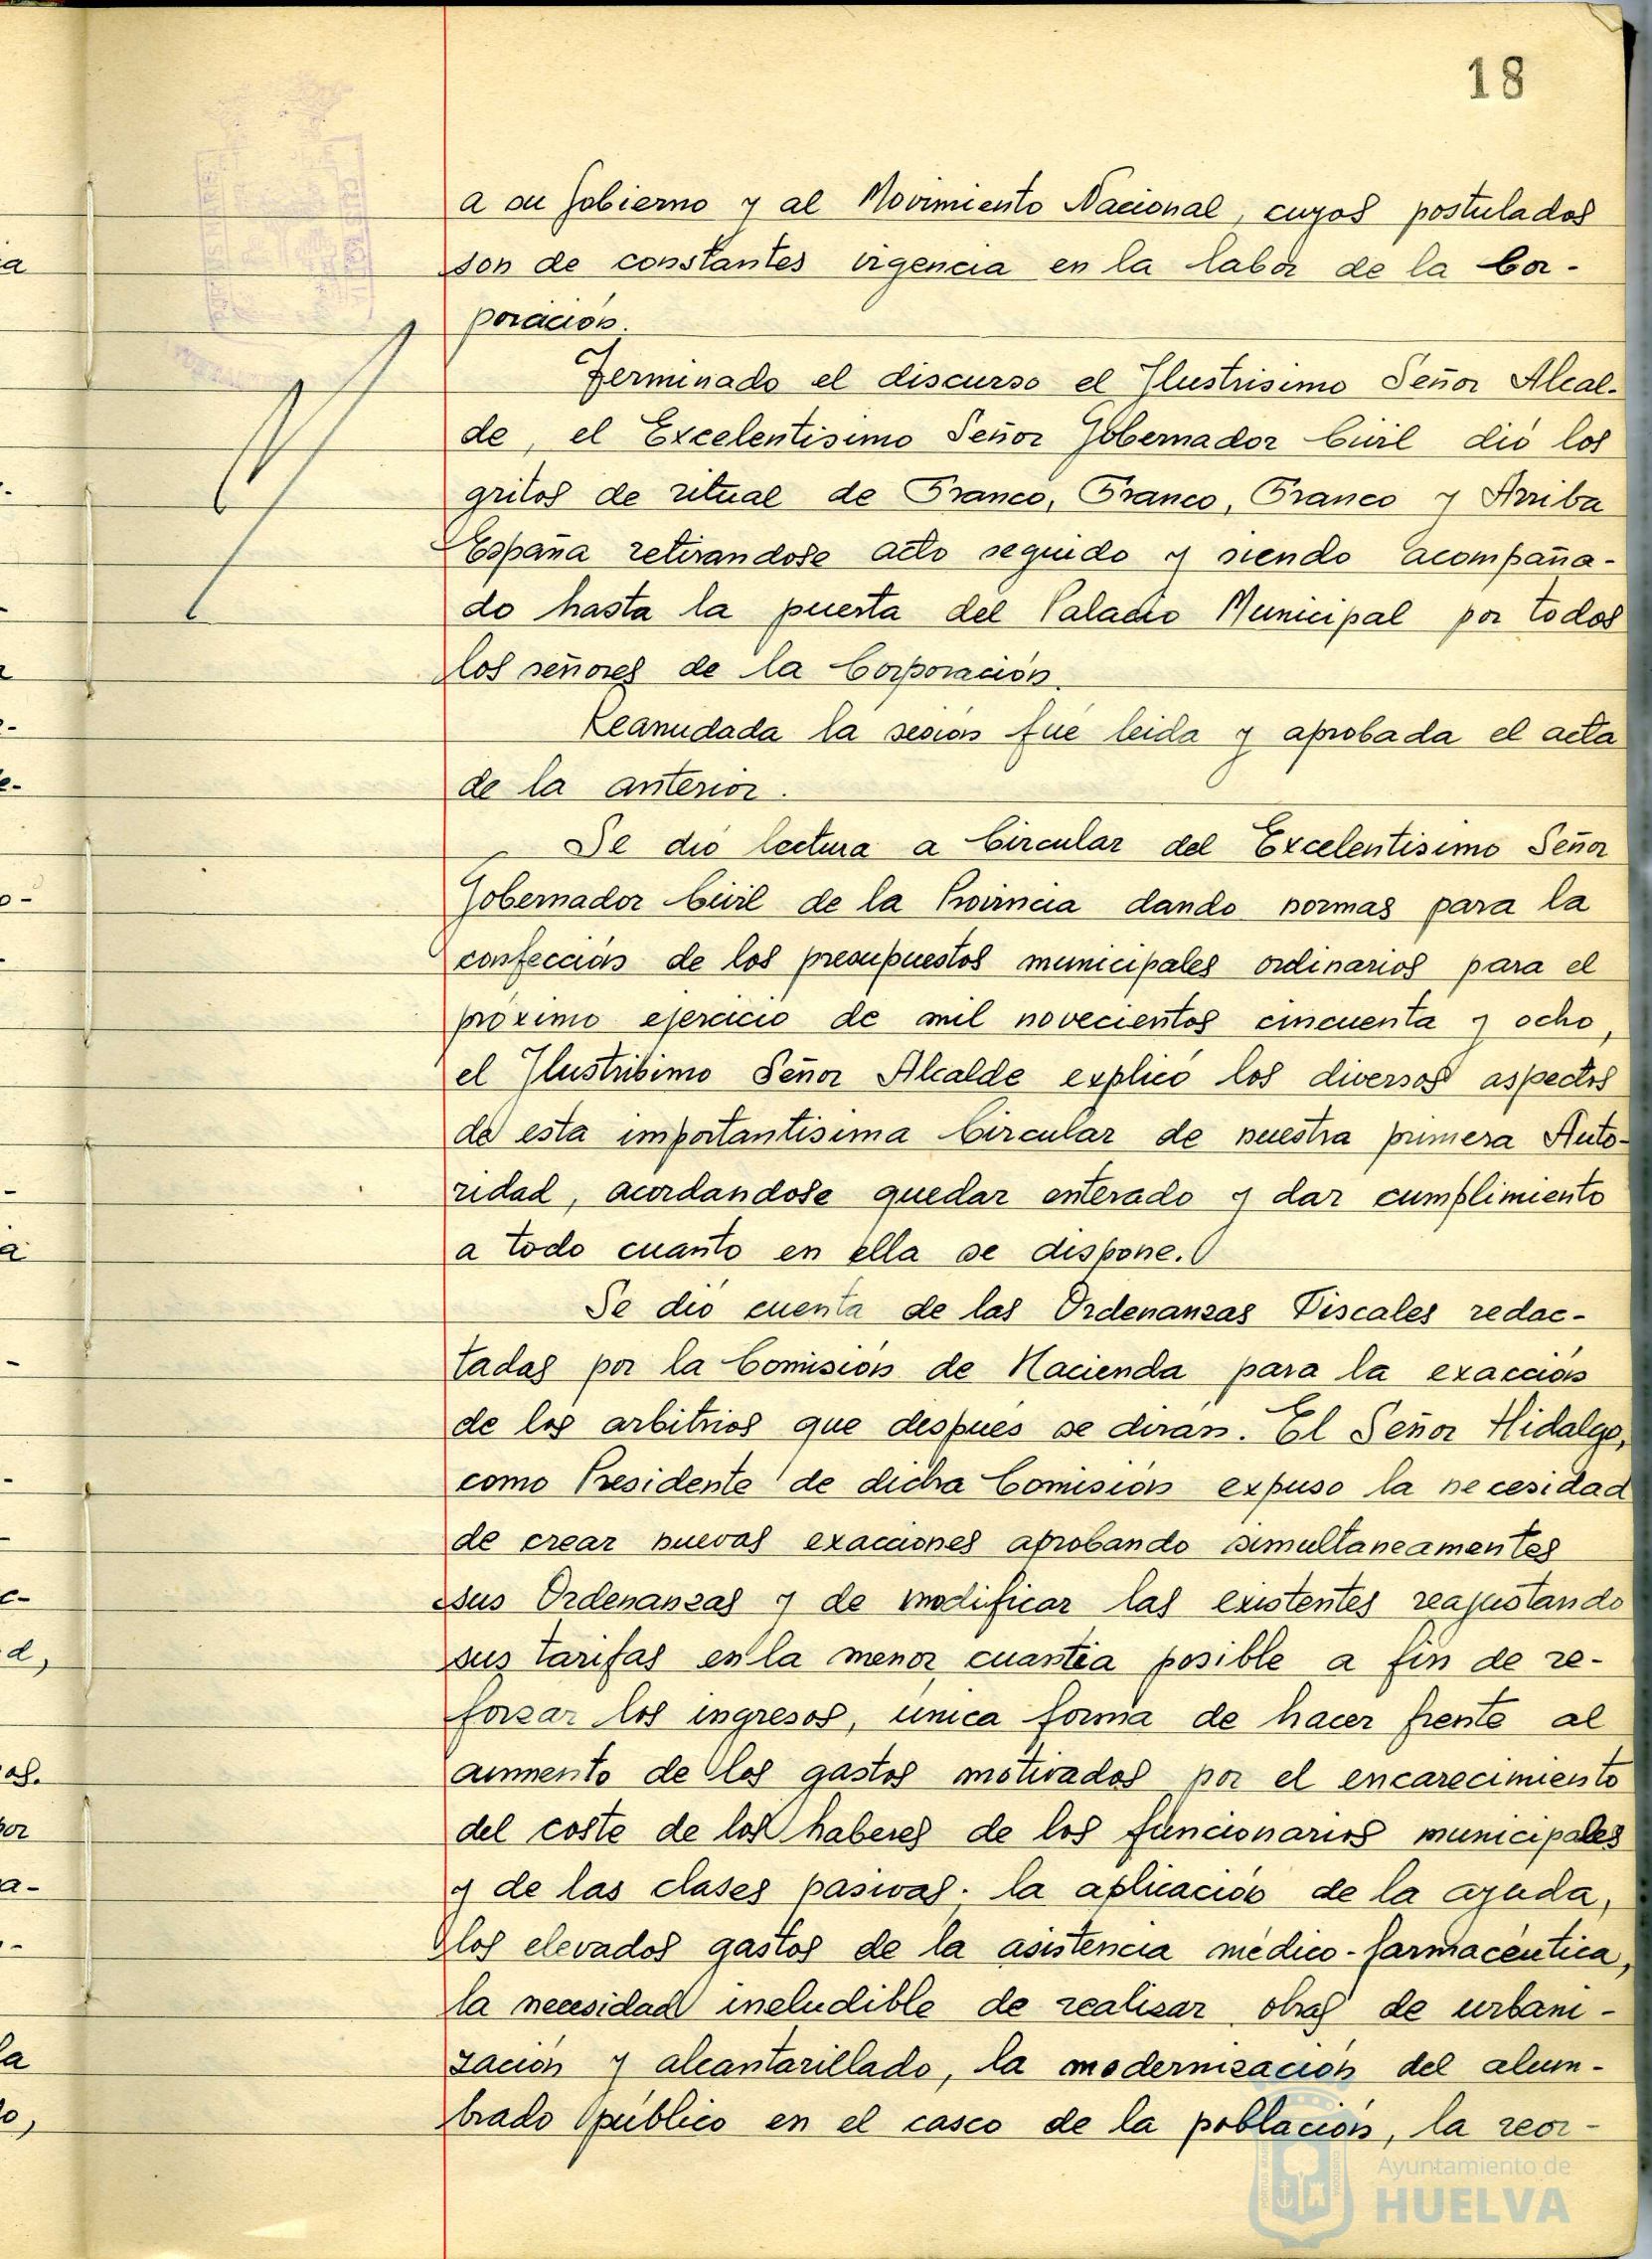 18
a su Gobierno y al Movimiento Nacional, cuyos postulados
son de constantes vigencia en la labor de la Cor-
poración.
Terminado el discurso el Ilustrisimo Señor Alcal-
de, el Excelentisimo Señor Gobernador Civil dió los
gritos de ritual de Franco, Franco, Franco y Arriba
España retirandose acto seguido y siendo acompaña-
do hasta la puerta del Palacio Municipal por todos
los señores de la Corporación.
Reanudada la sesión fué leida y aprobada el acta
de la anterior.
Se dió lectura a Circular del Excelentisimo Señor
Gobernador Civil de la Provincia dando normas para la
confección de los presupuestos municipales ordinarios para el
próximo ejercicio de mil novecientos cincuenta y ocho,
el Ilustrisimo Señor Alcalde explicó los diversos aspectos
de esta importantisima Circular de nuestra primera Auto-
ridad, acordandose quedar enterado y dar cumplimiento
a todo cuanto en ella se dispone.
Se dió cuenta de las Ordenanzas Fiscales redac-
tadas por la Comisión de Hacienda para la exacción
de los arbitrios que despues se diran. El Señor Hidalgo,
como Presidente de dicha Comisión expuso la necesidad
de crear nuevas exacciones aprobando simultaneamentes
sus Ordenanzas y de modificar las existentes reajustando
sus tarifas en la menor cuantia posible a fin de re-
forzar los ingresos, única forma de hacer frente al
aumento de los gastos motivados por el encarecimiento
del coste de los haberes de los funcionarios municipales
y de las clases pasivas. la aplicación de la ayuda,
los elevados gastos de la asistencia médico-farmacéutica,
la necesidad ineludible de realizar obras de urbani-
zación y alcantarillado, la modernización del alum-
brado público en el casco de la población, la reor-
Ayuntamiento de
HUELVA